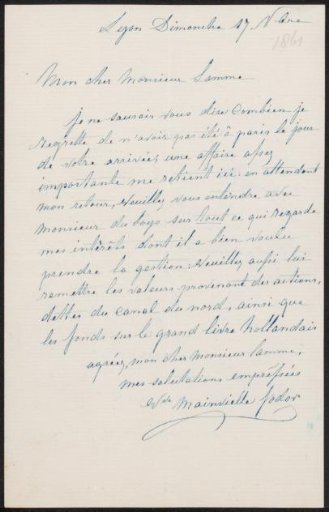 Lyon Dimanche 17 9bre
1861
Mon cher Monsieur Lamme
je ne saurais vous dire combien je
regrette de n'avoir pas été à paris le jour
de votre arrivée, une affaire assez
importante me retient ici, en attendant
mon retour, veuillez vous entendre avec
Monsieur du bays sur tout ce qui regarde
mes intérêts dont il a bien voulu
prendre la gestion, veuillez aussi lui
remettre les valeurs provenant des actions,
dettes du canal du nord, ainsi que
les fonds sur le grand livre hollandais
agréez, mon cher Monsieur Lamme,
mes salutations empressées
Mainvielle fodor